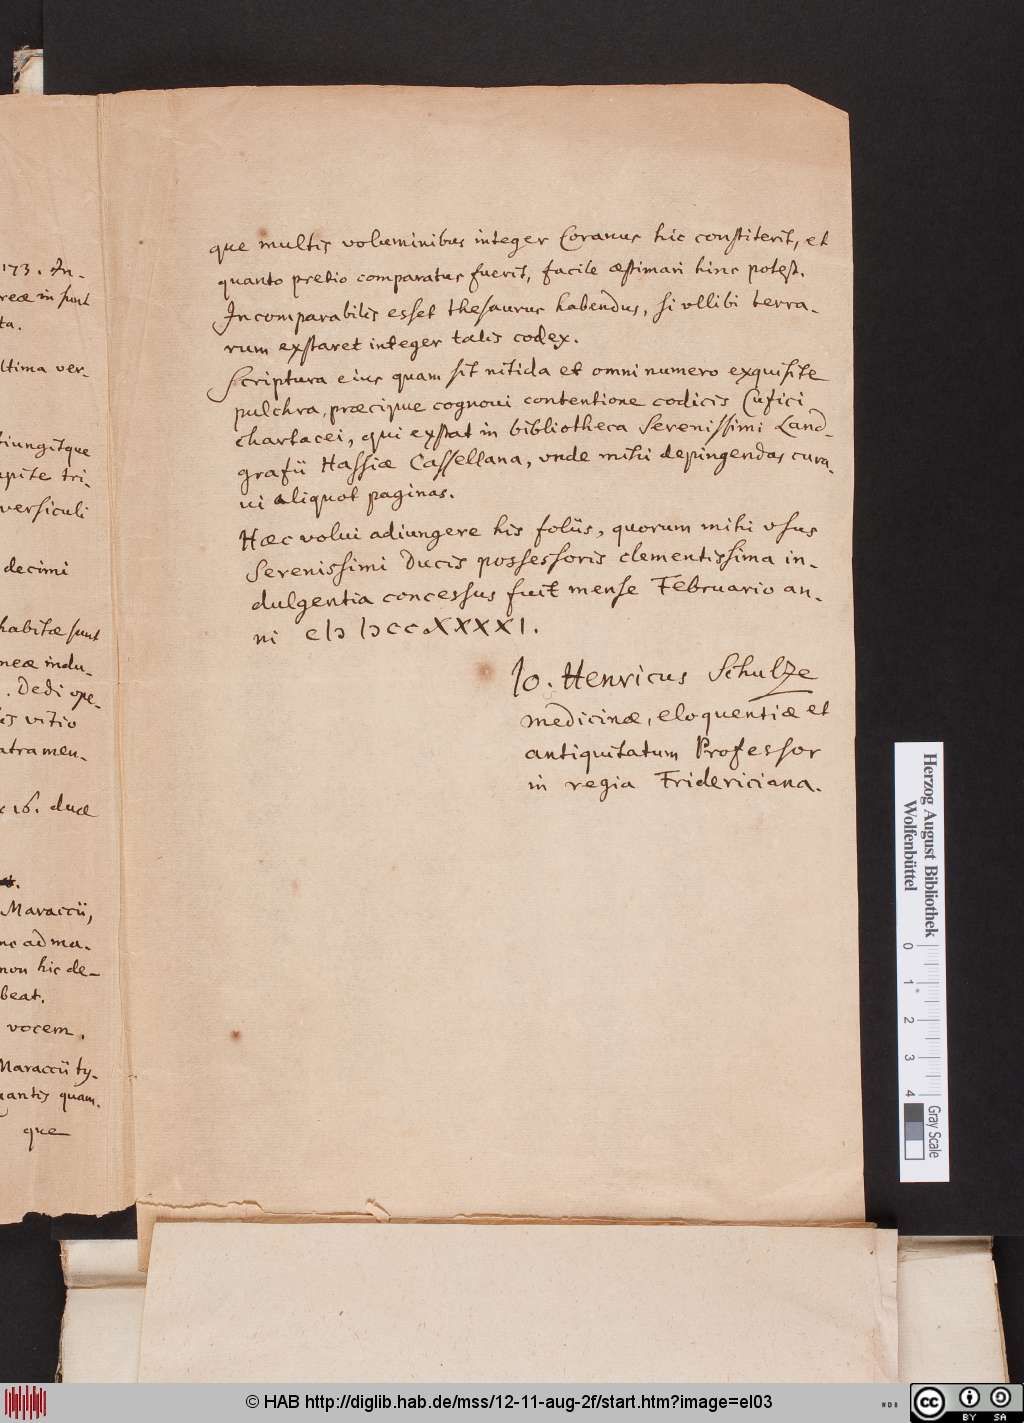 173. In-
reæ in sunt
ta.
ltima ver-
tiungitque
apite tri-
versiculi
decimi
habitæ sunt
neæ indu-
. Dedi ope-
is vitio
atramen-
16. duæ
Maraccii,
ne ad ma-
non hic de-
beat.
vocem.
Maraccii ty-
gantis quam-
que
que multis voluminibus integer Coranus hic constiterit, et
quanto pretio comparatus fuerit, facile æstimari hinc potest.
Incomparabilis esset thesaurus habendus, si vllibi terra-
rum exstaret integer talis codex.
Scriptura eius quam sit nitida et omni numero exquisite
pulchra, præcipue cognoui contentione codicis Cufici
chartacei, qui exstat in bibliotheca Serenissimi Land-
grafii Hassiæ Cassellana, vnde mihi depingendas cura-
ui aliquot paginas.
Hæc volui adiungere his foliis, quorum mihi vsus
Serenissimi Ducis possessoris clementissima in-
dulgentia concessus fuit mense Februario an-
ni cIↃ IↃccXXXXI.
Io. Henricus Schulze
medicinæ, eloquentiæ et
antiquitatum Professor
in regia Fridericiana.
Herzog August Bibliothek
Wolfenbüttel
0 1 2 3 4
Gray Scale
© HAB http://diglib.hab.de/mss/12-11-aug-2f/start.htm?image=el03
cc BY SA